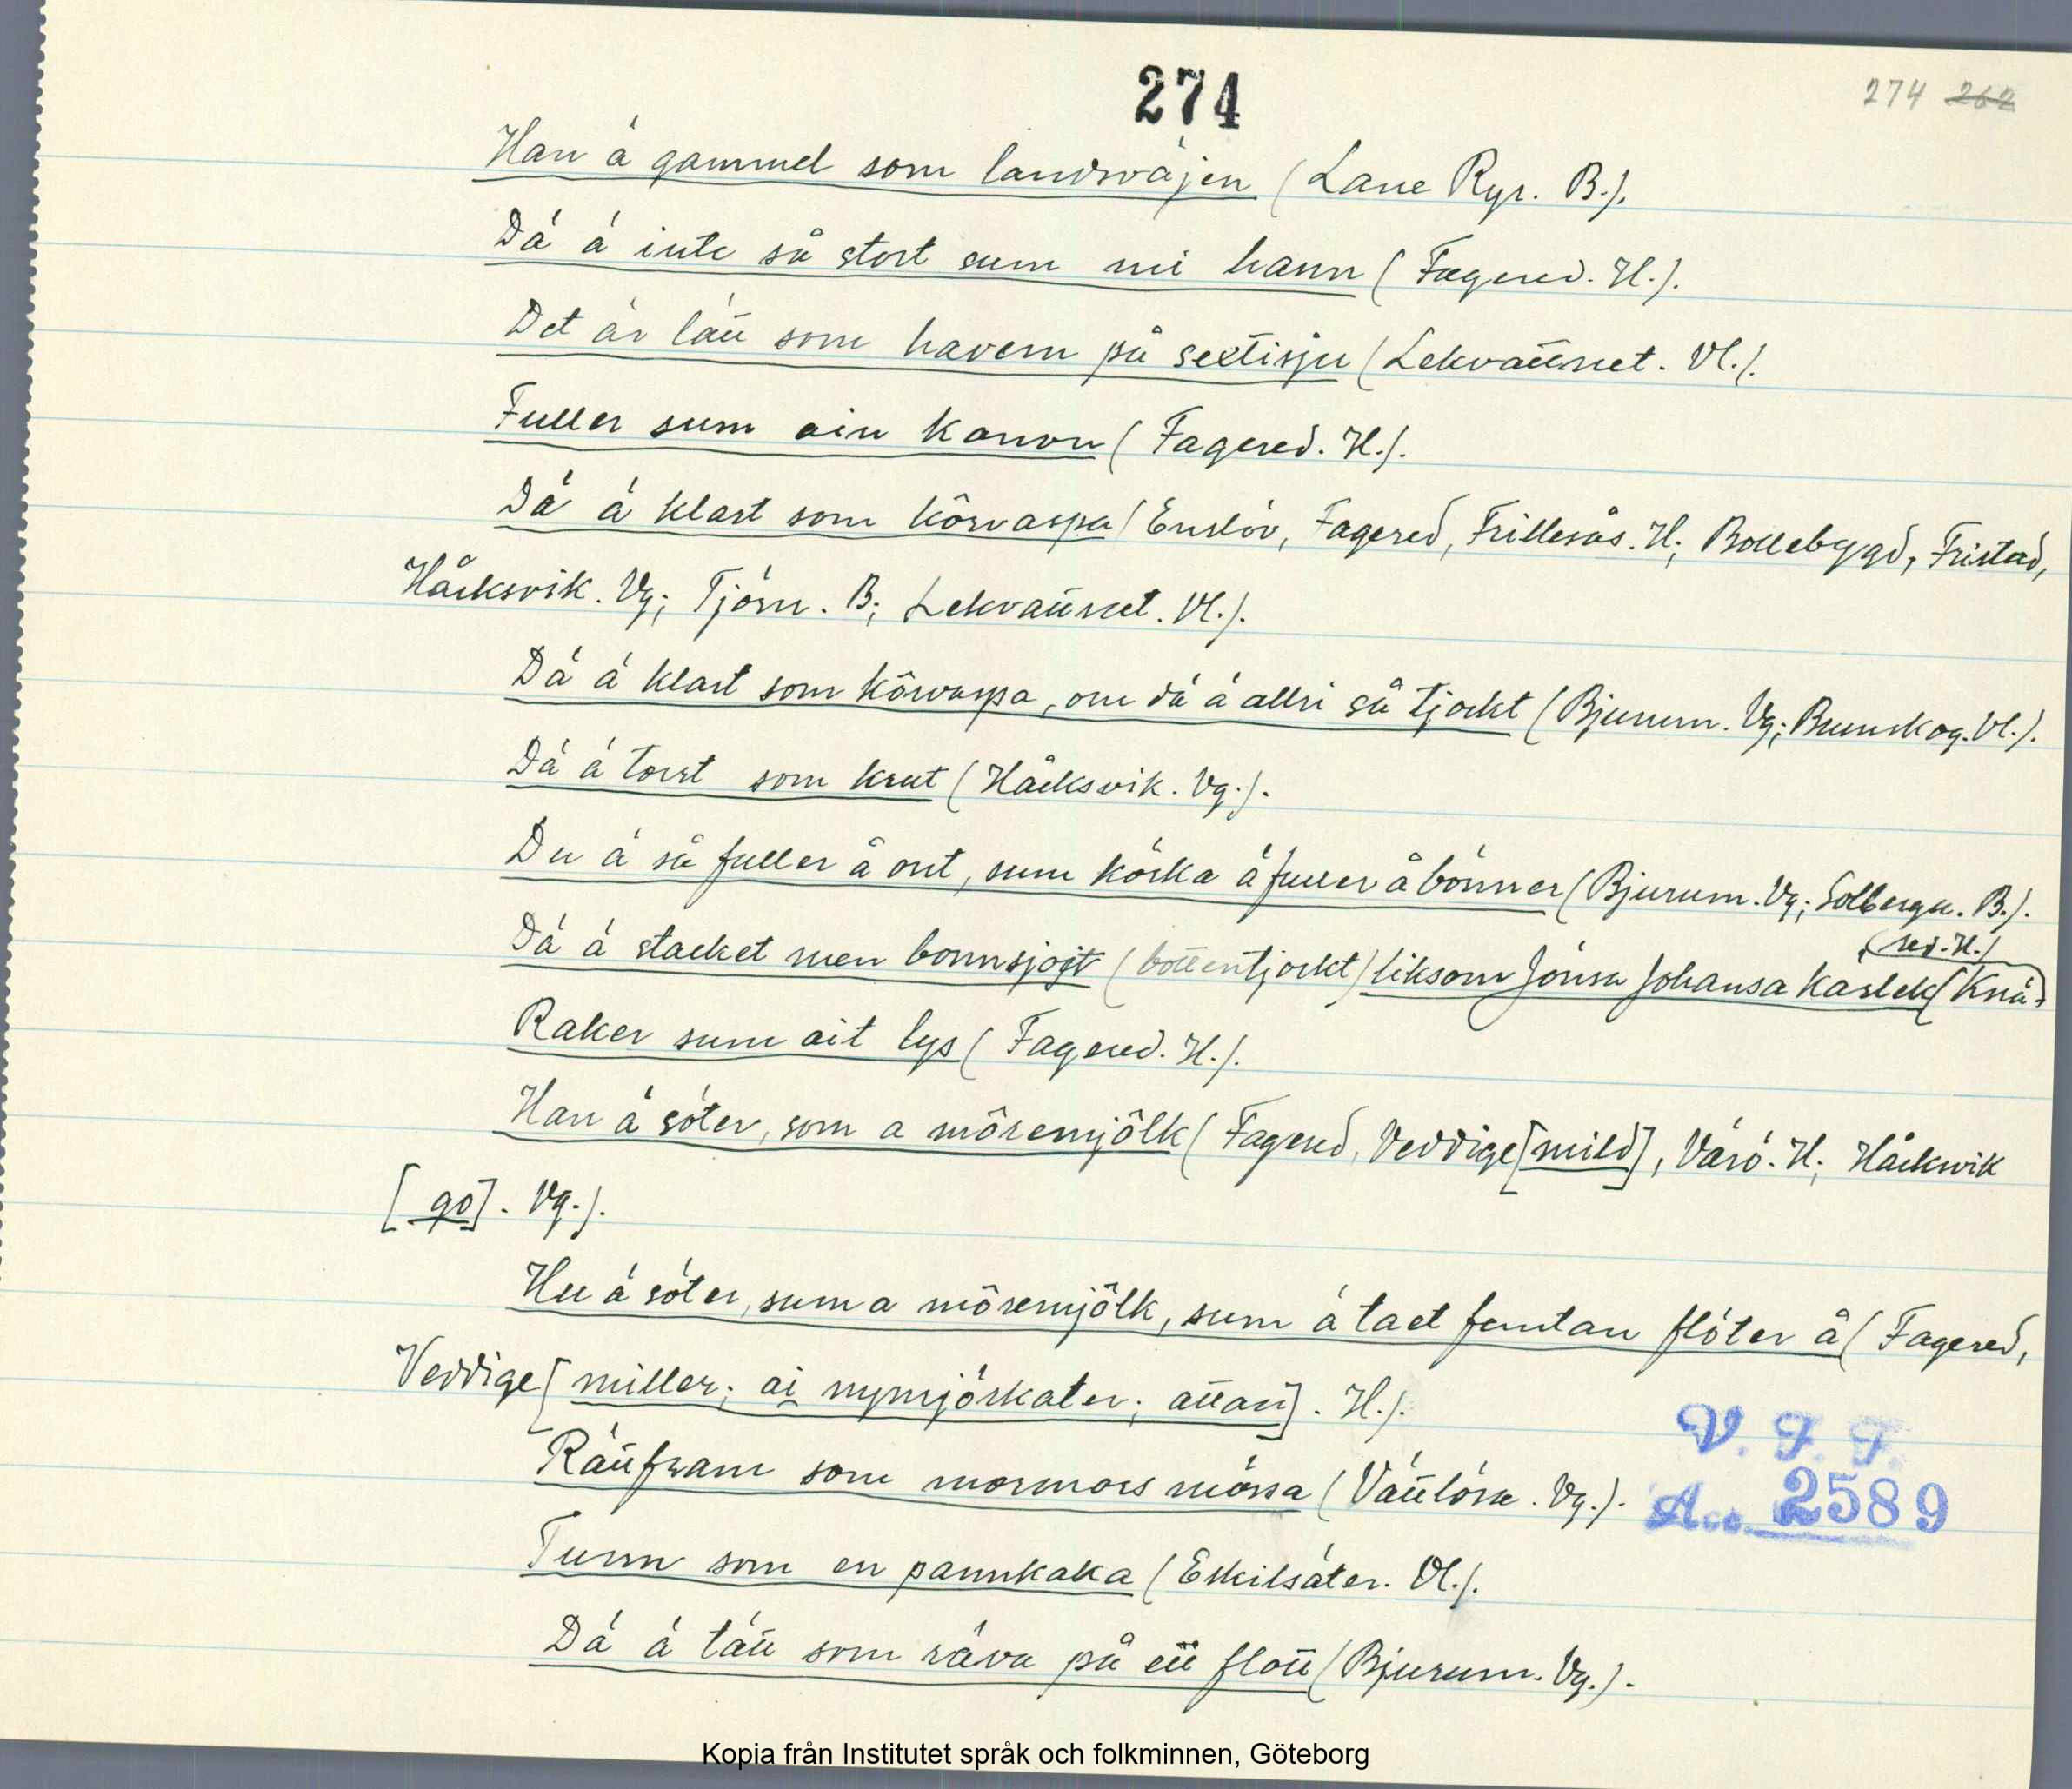 274
274 262
Han ä gammel som landsväjen (Lane Ryr. B.).
Dä ä inte så stort sum mi hann (Fagered. H.).
Det är lätt som havern på sextisju (Lekvattnet. Vl.).
Fuller sum ain kanon (Fagered. H.).
Dä ä klart som körvaspa (Enslöv, Fagered, Frillesås. H; Bollebygd, Fristad,
Håcksvik. Vg; Tjörn. B; Lekvattnet. Vl.).
Dä ä klart som körvaspa, om dä ä allri så tjockt (Bjurum. Vg; Brunskog. Vl.).
Dä ä tort som krut (Håcksvik. Vg.).
Du ä så fuller å ont, sum körka ä fuller å bönner (Bjurum. Vg; Solberga. B.).
Dä ä stacket men bonnsjojt (bottentjockt) liksom Jönsa Johansa karlek (Knä-
red. H.)
Raker sum ait lys (Fagered. H.).
Han ä söter, som a möremjölk (Fagered, Veddige [mild], Värö. H; Håcksvik
[go]. Vg.).
Hu ä söter, sum a möremjölk, sum ä taet femtan flöter å (Fagered,
Veddige [miller; ai nymjörkater; attan]. H.).
Rättfram som mormors mössa (Vättlösa. Vg.).
Tunn som en pannkaka (Eskilsäter. Vl.).
Dä ä tätt som räva på ett flott (Bjurum. Vg.).
V. F. F.
Acc. 2589
Kopia från Institutet språk och folkminnen, Göteborg